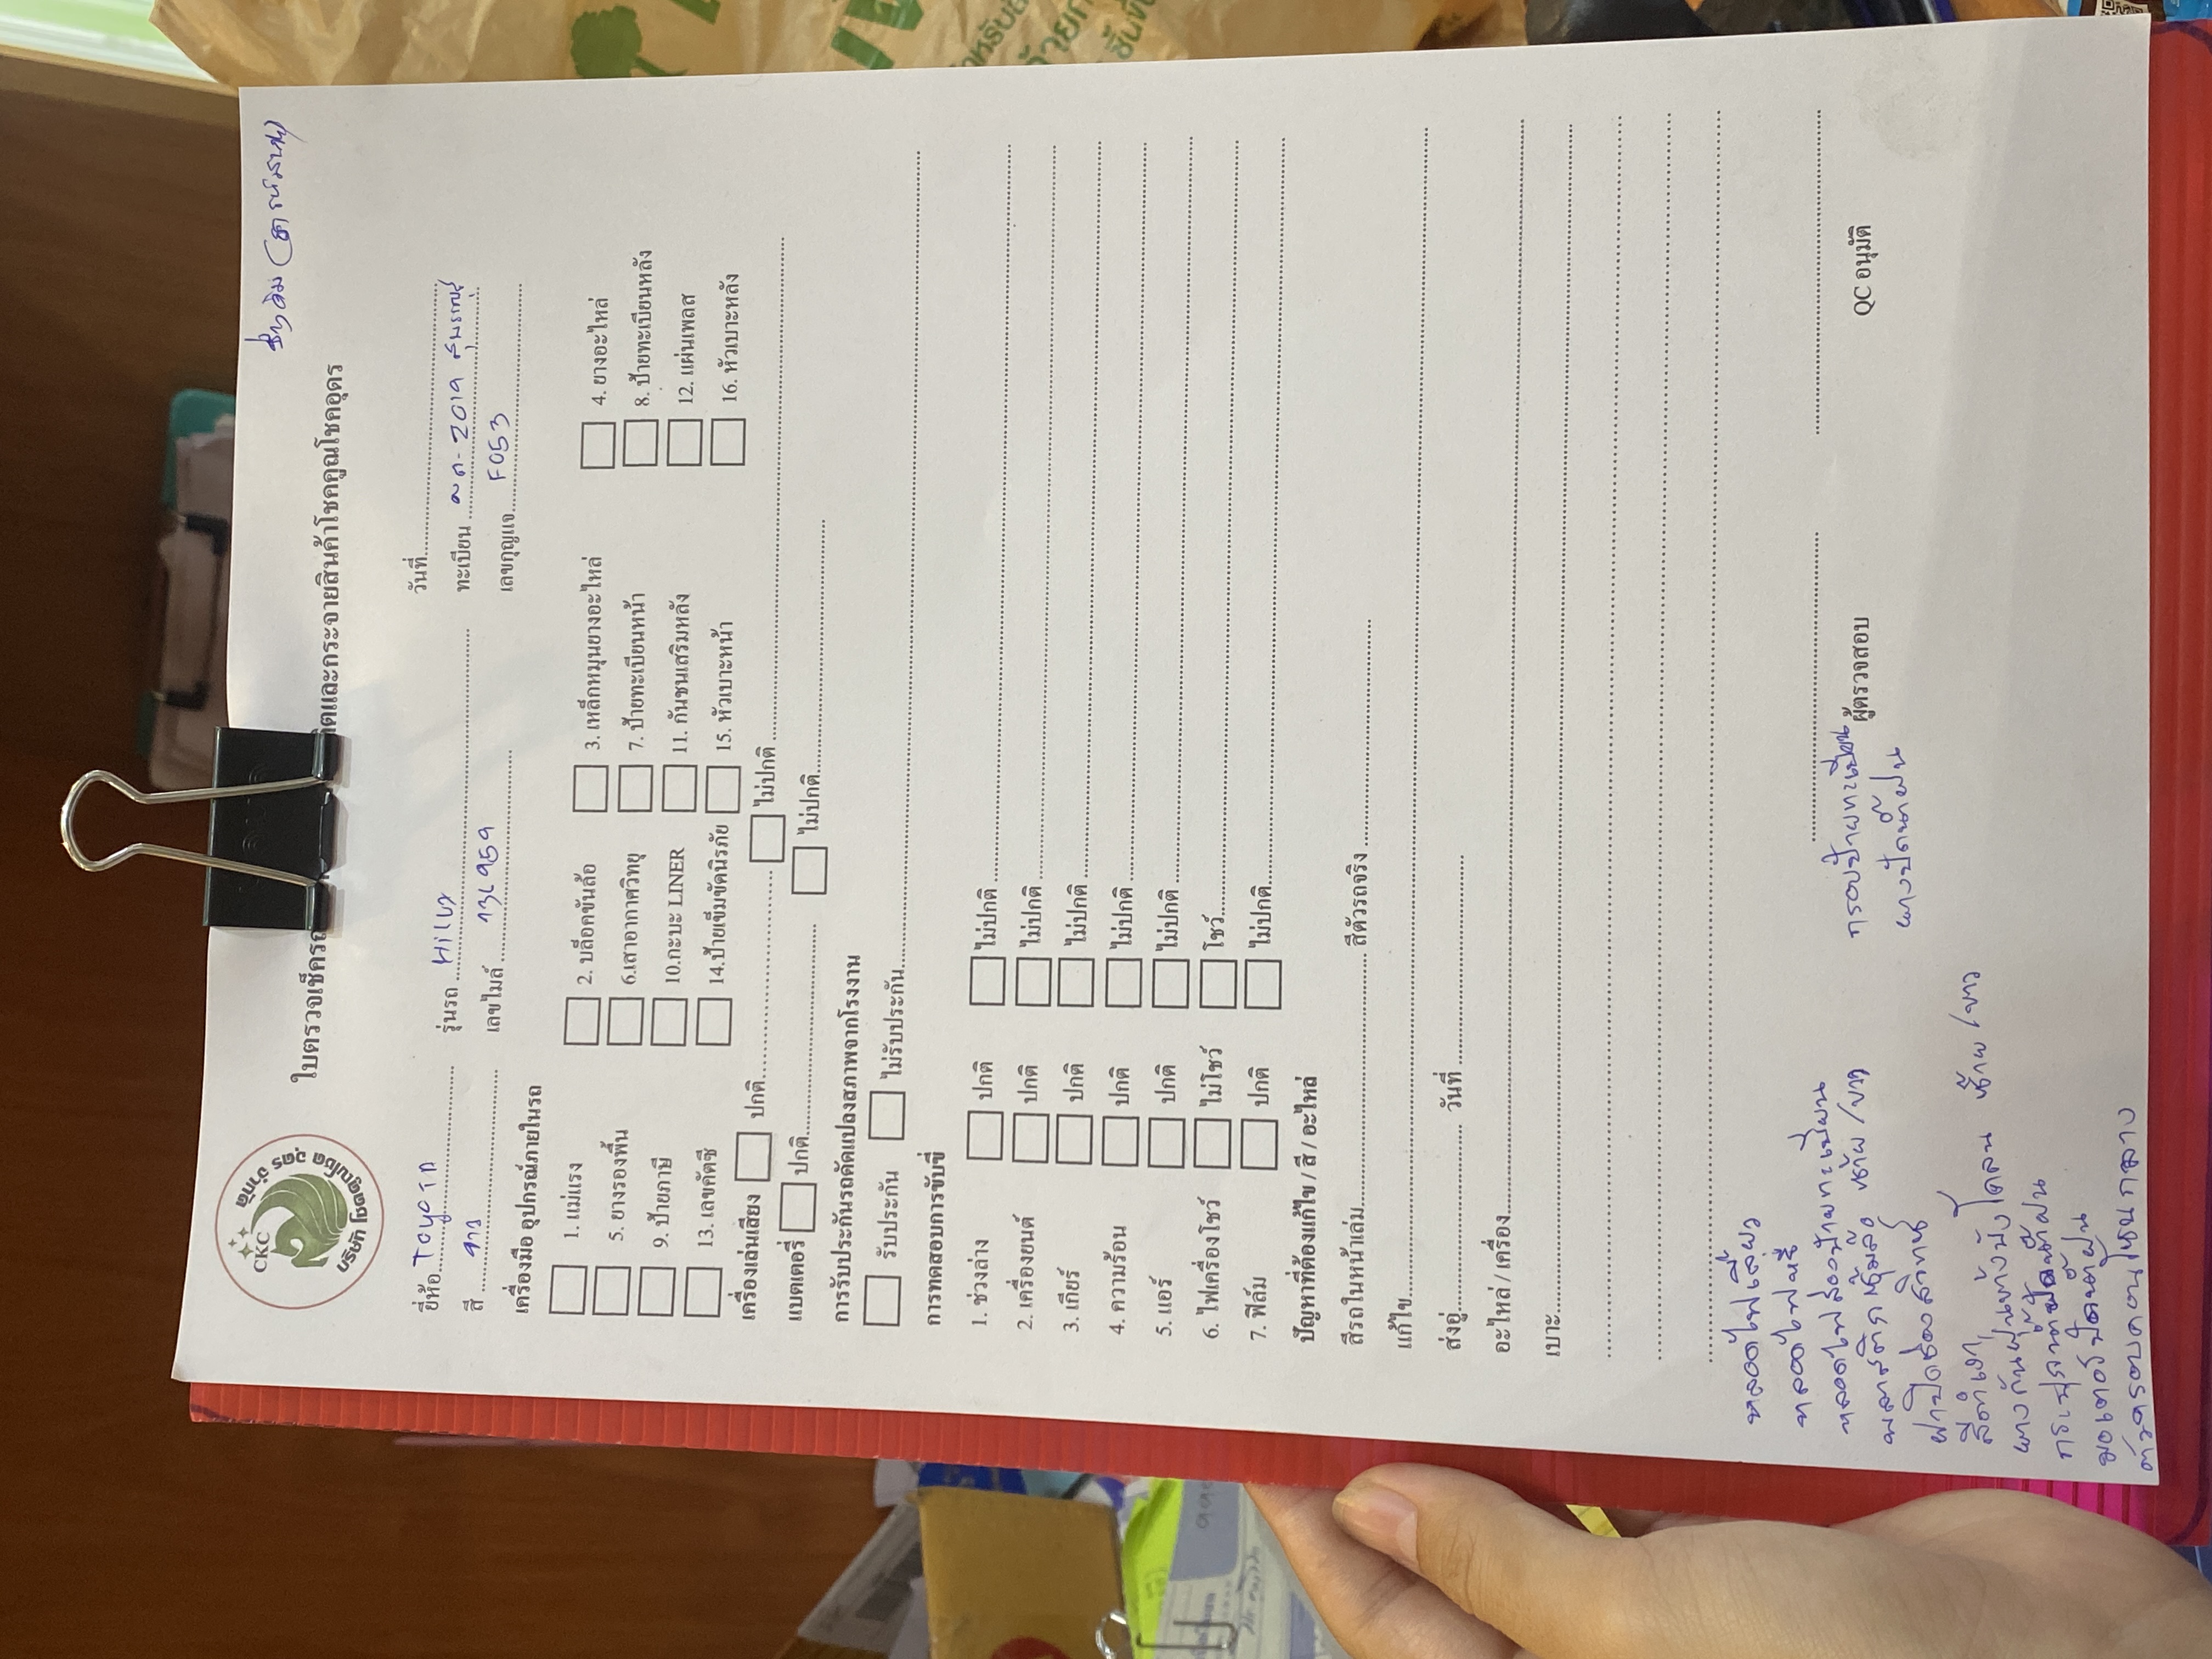 CKC
บริษัท โชคคูณโชค อุดร จำกัด
ใบตรวจเช็ครถ
และกระจายสินค้าโชคคูณโชคอุดร
วันที่
ยี่ห้อ Toyota รุ่นรถ Hilux ทะเบียน 2019
สี ขาว เลขไมล์ เลขกุญแจ F053
เครื่องมือ อุปกรณ์ภายในรถ
1. แม่แรง 2. บล็อคขันล้อ 3. เหล็กหมุนยางอะไหล่ 4. ยางอะไหล่
5. ยางรองพื้น 6.เสาอากาศวิทยุ 7. ป้ายทะเบียนหน้า 8. ป้ายทะเบียนหลัง
9. ป้ายภาษี 10.กะบะ LINER 11. กันชนเสริมหลัง 12. แผ่นเพลส
13. เลขคัตซี 14.ป้ายเข็มขัดนิรภัย 15. หัวเบาะหน้า 16. หัวเบาะหลัง
เครื่องเล่นเสียง ปกติ ไม่ปกติ
แบตเตอรี่ ปกติ ไม่ปกติ
การรับประกันรถดัดแปลงสภาพจากโรงงาน
รับประกัน ไม่รับประกัน
การทดสอบการขับขี่
1. ช่วงล่าง ปกติ ไม่ปกติ
2. เครื่องยนต์ ปกติ ไม่ปกติ
3. เกียร์ ปกติ ไม่ปกติ
4. ความร้อน ปกติ ไม่ปกติ
5. แอร์ ปกติ ไม่ปกติ
6. ไฟเครื่องโชว์ ไม่โชว์ โชว์
7. ฟิล์ม ปกติ ไม่ปกติ
ปัญหาที่ต้องแก้ไข / สี / อะไหล่
สีรถในหน้าเล่ม สีตัวรถจริง
แก้ไข
ส่งอู่ วันที่
อะไหล่ / เครื่อง
เบาะ
หลอดไฟเลี้ยว
หลอดไฟหรี่
หลอดไฟส่องป้ายทะเบียน
พลาสติกซุ้มล้อ ซ้าย / ขวา
กรอบป้ายทะเบียน
ผู้ตรวจสอบ QC อนุมัติ
ยางปัดน้ำฝน
สีดำเงา
ยางกันฝุ่นบังโคลน ซ้าย / ขวา
มอเตอร์ปัดน้ำฝน